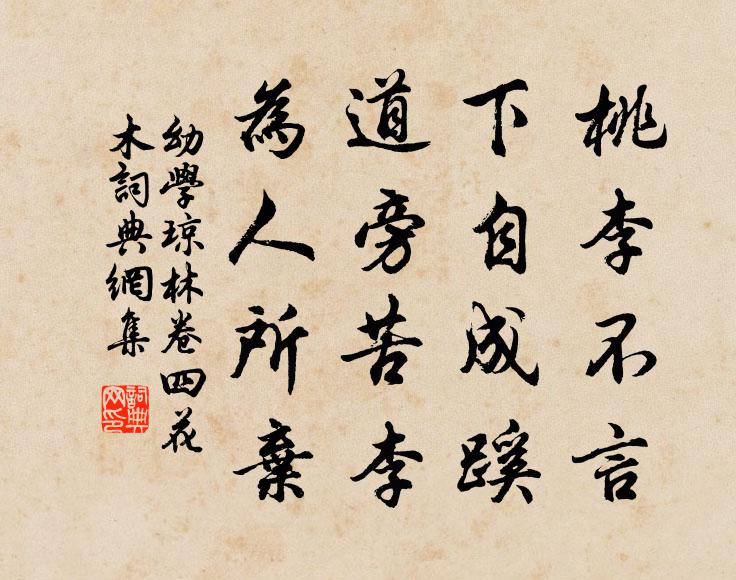 桃李不言
下自成蹊
道旁苦李
為人所棄
幼學琼林卷四花
木詞典網集
詞典
网印